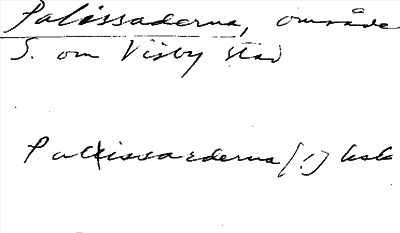 Palissaderna, område
S. om Visby stad
Pallissarderna (!)